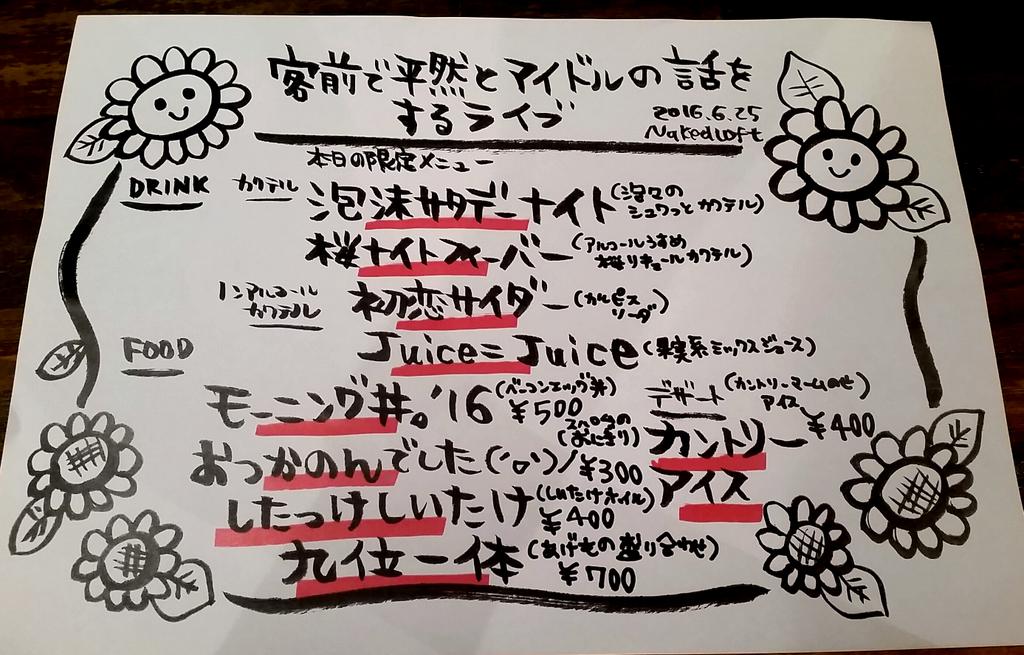 客前で平然とアイドルの話を
するライブ
2016.6.25
NakedLoft
本日の限定メニュー
DRINK
カクテル
泡沫サタデーナイト(泡々の
シュワっとカクテル)
桜ナイトフィーバー(アルコールうすめ
桜リキュールカクテル)
ノンアルコール
カクテル
初恋サイダー(カルピス
ソーダ)
Juice=Juice(果実系ミックスジュース)
FOOD
モーニング丼。'16(ベーコンエッグ丼)
¥500
おっかのんでした('o')/¥300
(スパムの
おにぎり)
したっけしいたけ(しいたけホイル)
¥400
九位一体(あげもの盛り合わせ)
¥700
デザート(カントリーマームのせ
アイス)
¥400
カントリー
アイス